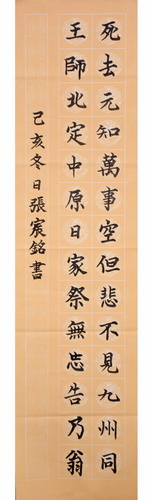 死去元知萬事空但悲不見九州同
王師北定中原日家祭無忘告乃翁
己亥冬日張宸銘書